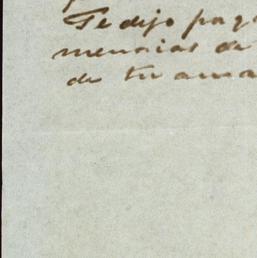 Te dejo pag
memorias de
de tu ama